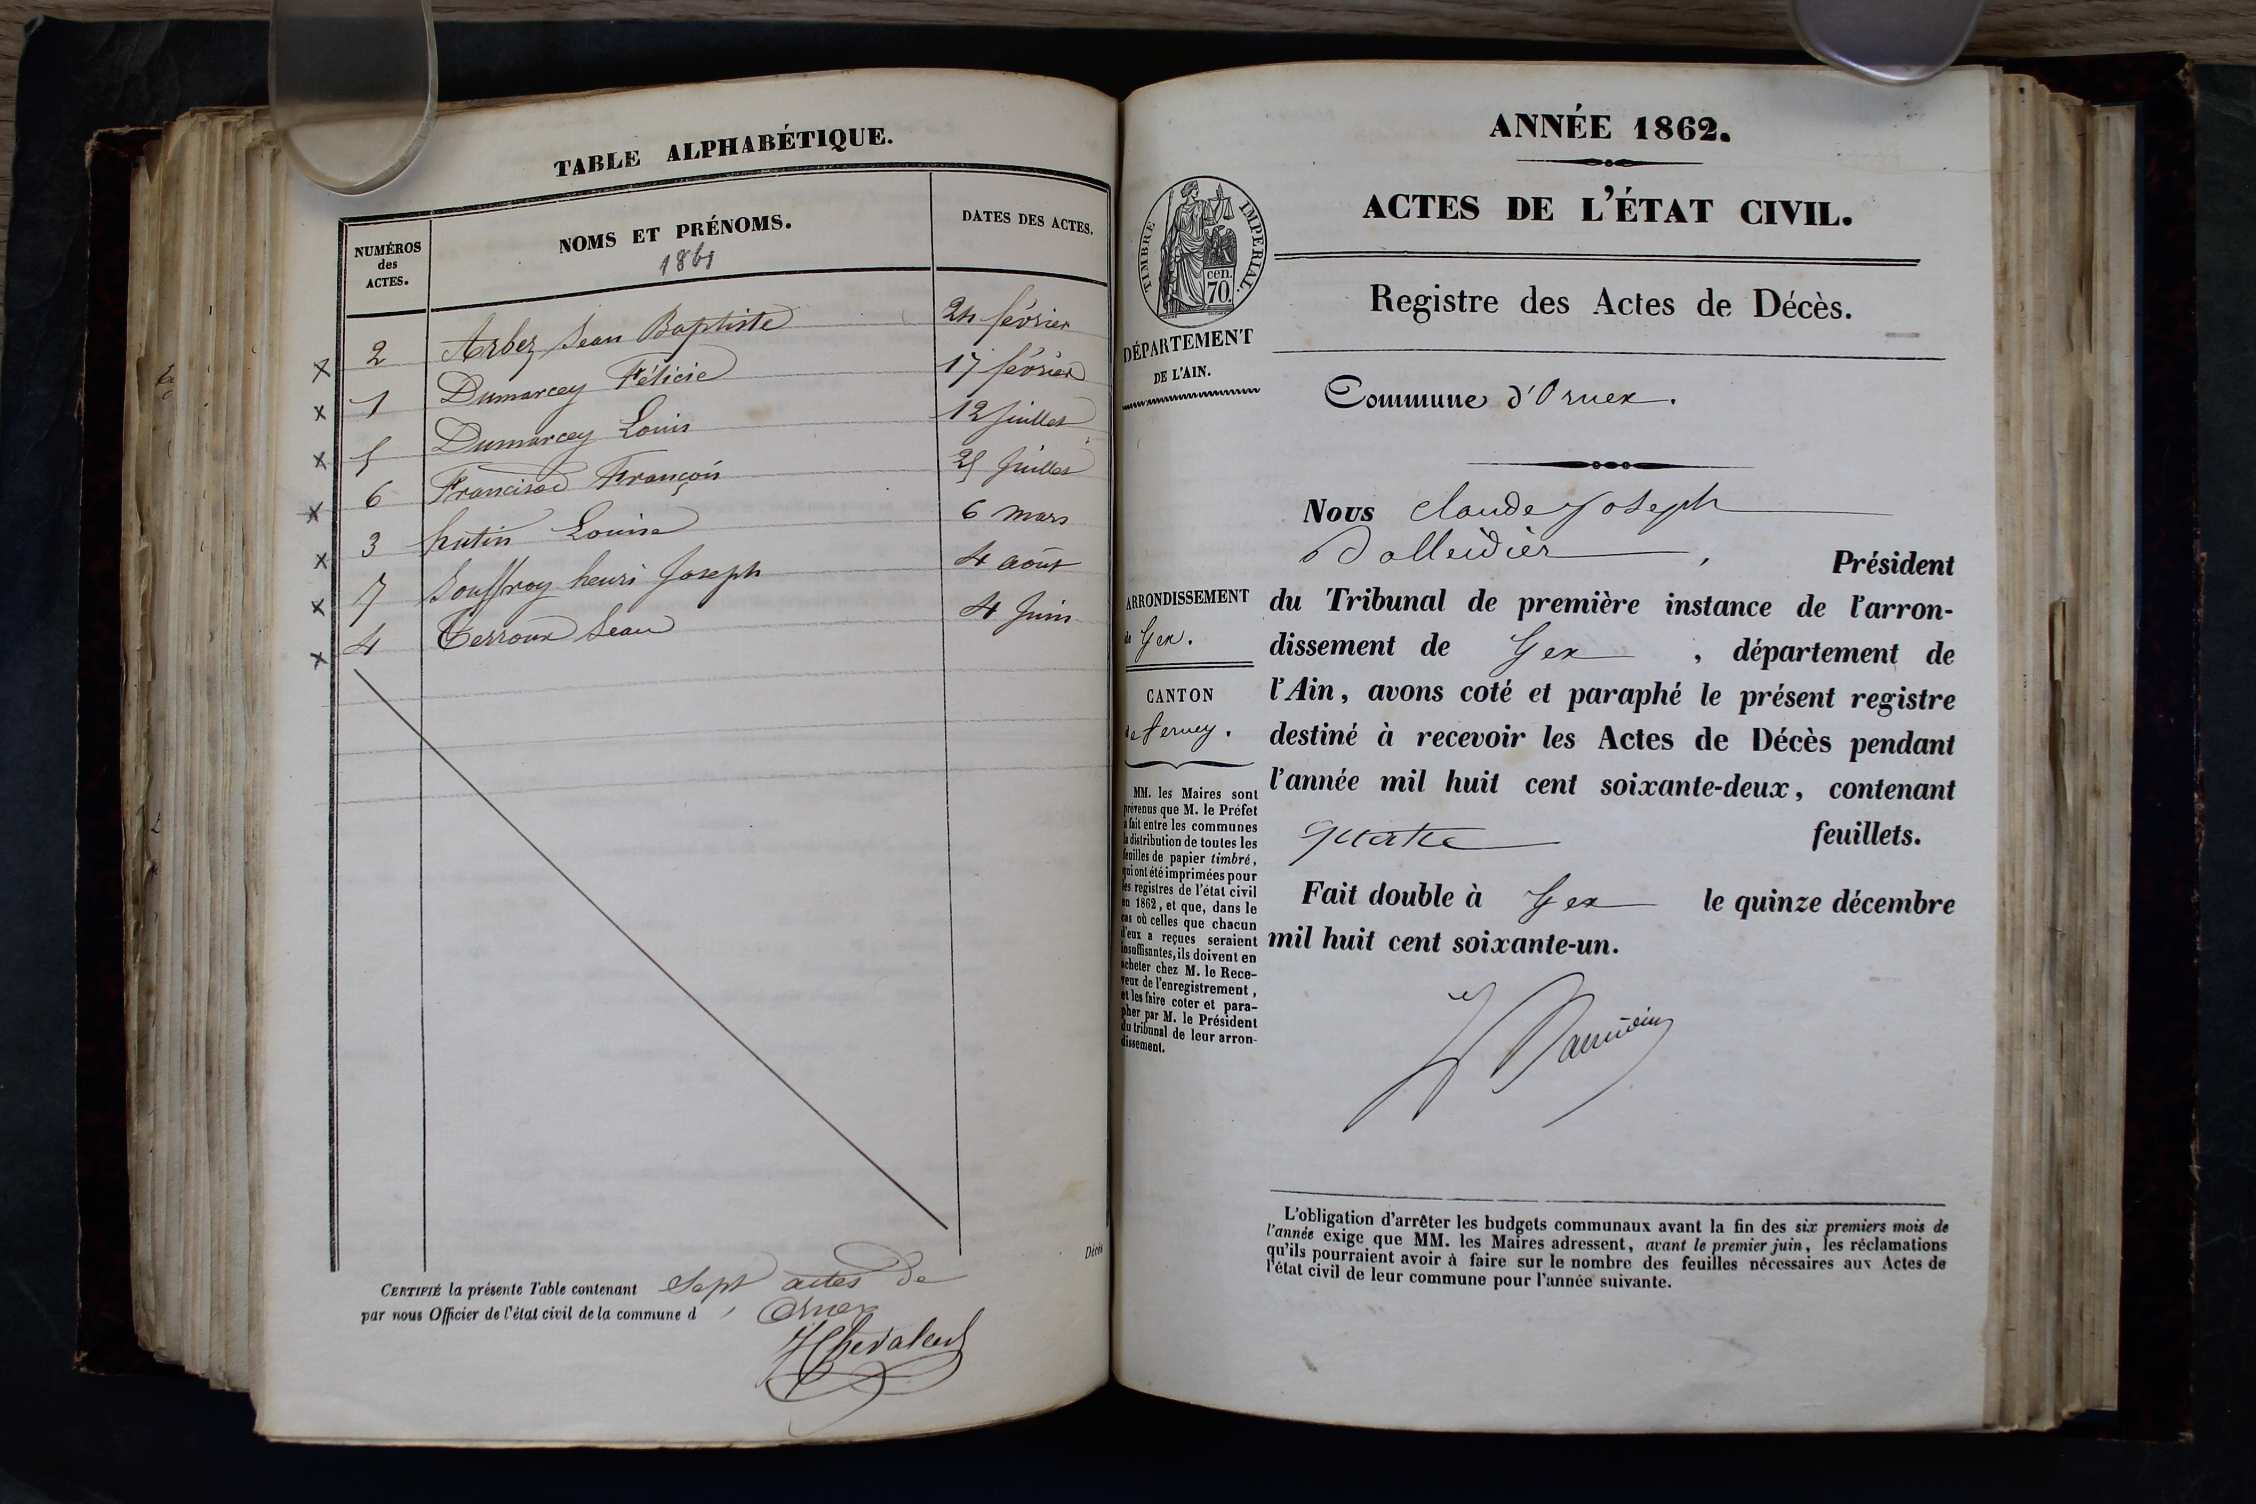 TABLE ALPHABÉTIQUE.
NUMÉROS
des
ACTES.
NOMS ET PRÉNOMS.
1861
DATES DES ACTES.
2 Arbez Jean Baptiste 24 février
1 Dumarcey Félicie 17 février
5 Dumarcey Louis 12 Juillet
6 François 25 Juillet
3 hutin Louise 6 mars
7 Souffroy henri Joseph 4 août
4 Terroux Jean 4 Juin
Décès
CERTIFIÉ la présente Table contenant Sept actes de
par nous Officier de l'état civil de la commune d' Ornex
ANNÉE 1862.
ACTES DE L'ÉTAT CIVIL.
TIMBRE IMPÉRIAL.
cen.
70.
DÉPARTEMENT
DE L'AIN.
Registre des Actes de Décès.
Commune d'Ornex.
Nous Claude Joseph
, Président
du Tribunal de première instance de l'arron-
dissement de Gex , département de
l'Ain, avons coté et paraphé le présent registre
destiné à recevoir les Actes de Décès pendant
l'année mil huit cent soixante-deux, contenant
quatre feuillets.
Fait double à Gex le quinze décembre
mil huit cent soixante-un.
ARRONDISSEMENT
de Gex.
CANTON
de Ferney.
MM. les Maires sont
prévenus que M. le Préfet
a fait entre les communes
la distribution de toutes les
feuilles de papier timbré,
qui ont été imprimées pour
les registres de l'état civil
en 1862, et que, dans le
cas où celles que chacun
d'eux a reçues seraient
insuffisantes, ils doivent en
acheter chez M. le Rece-
veur de l'enregistrement,
et les faire coter et para-
pher par M. le Président
du tribunal de leur arron-
dissement.
L'obligation d'arrêter les budgets communaux avant la fin des six premiers mois de
l'année exige que MM. les Maires adressent, avant le premier juin, les réclamations
qu'ils pourraient avoir à faire sur le nombre des feuilles nécessaires aux Actes de
l'état civil de leur commune pour l'année suivante.